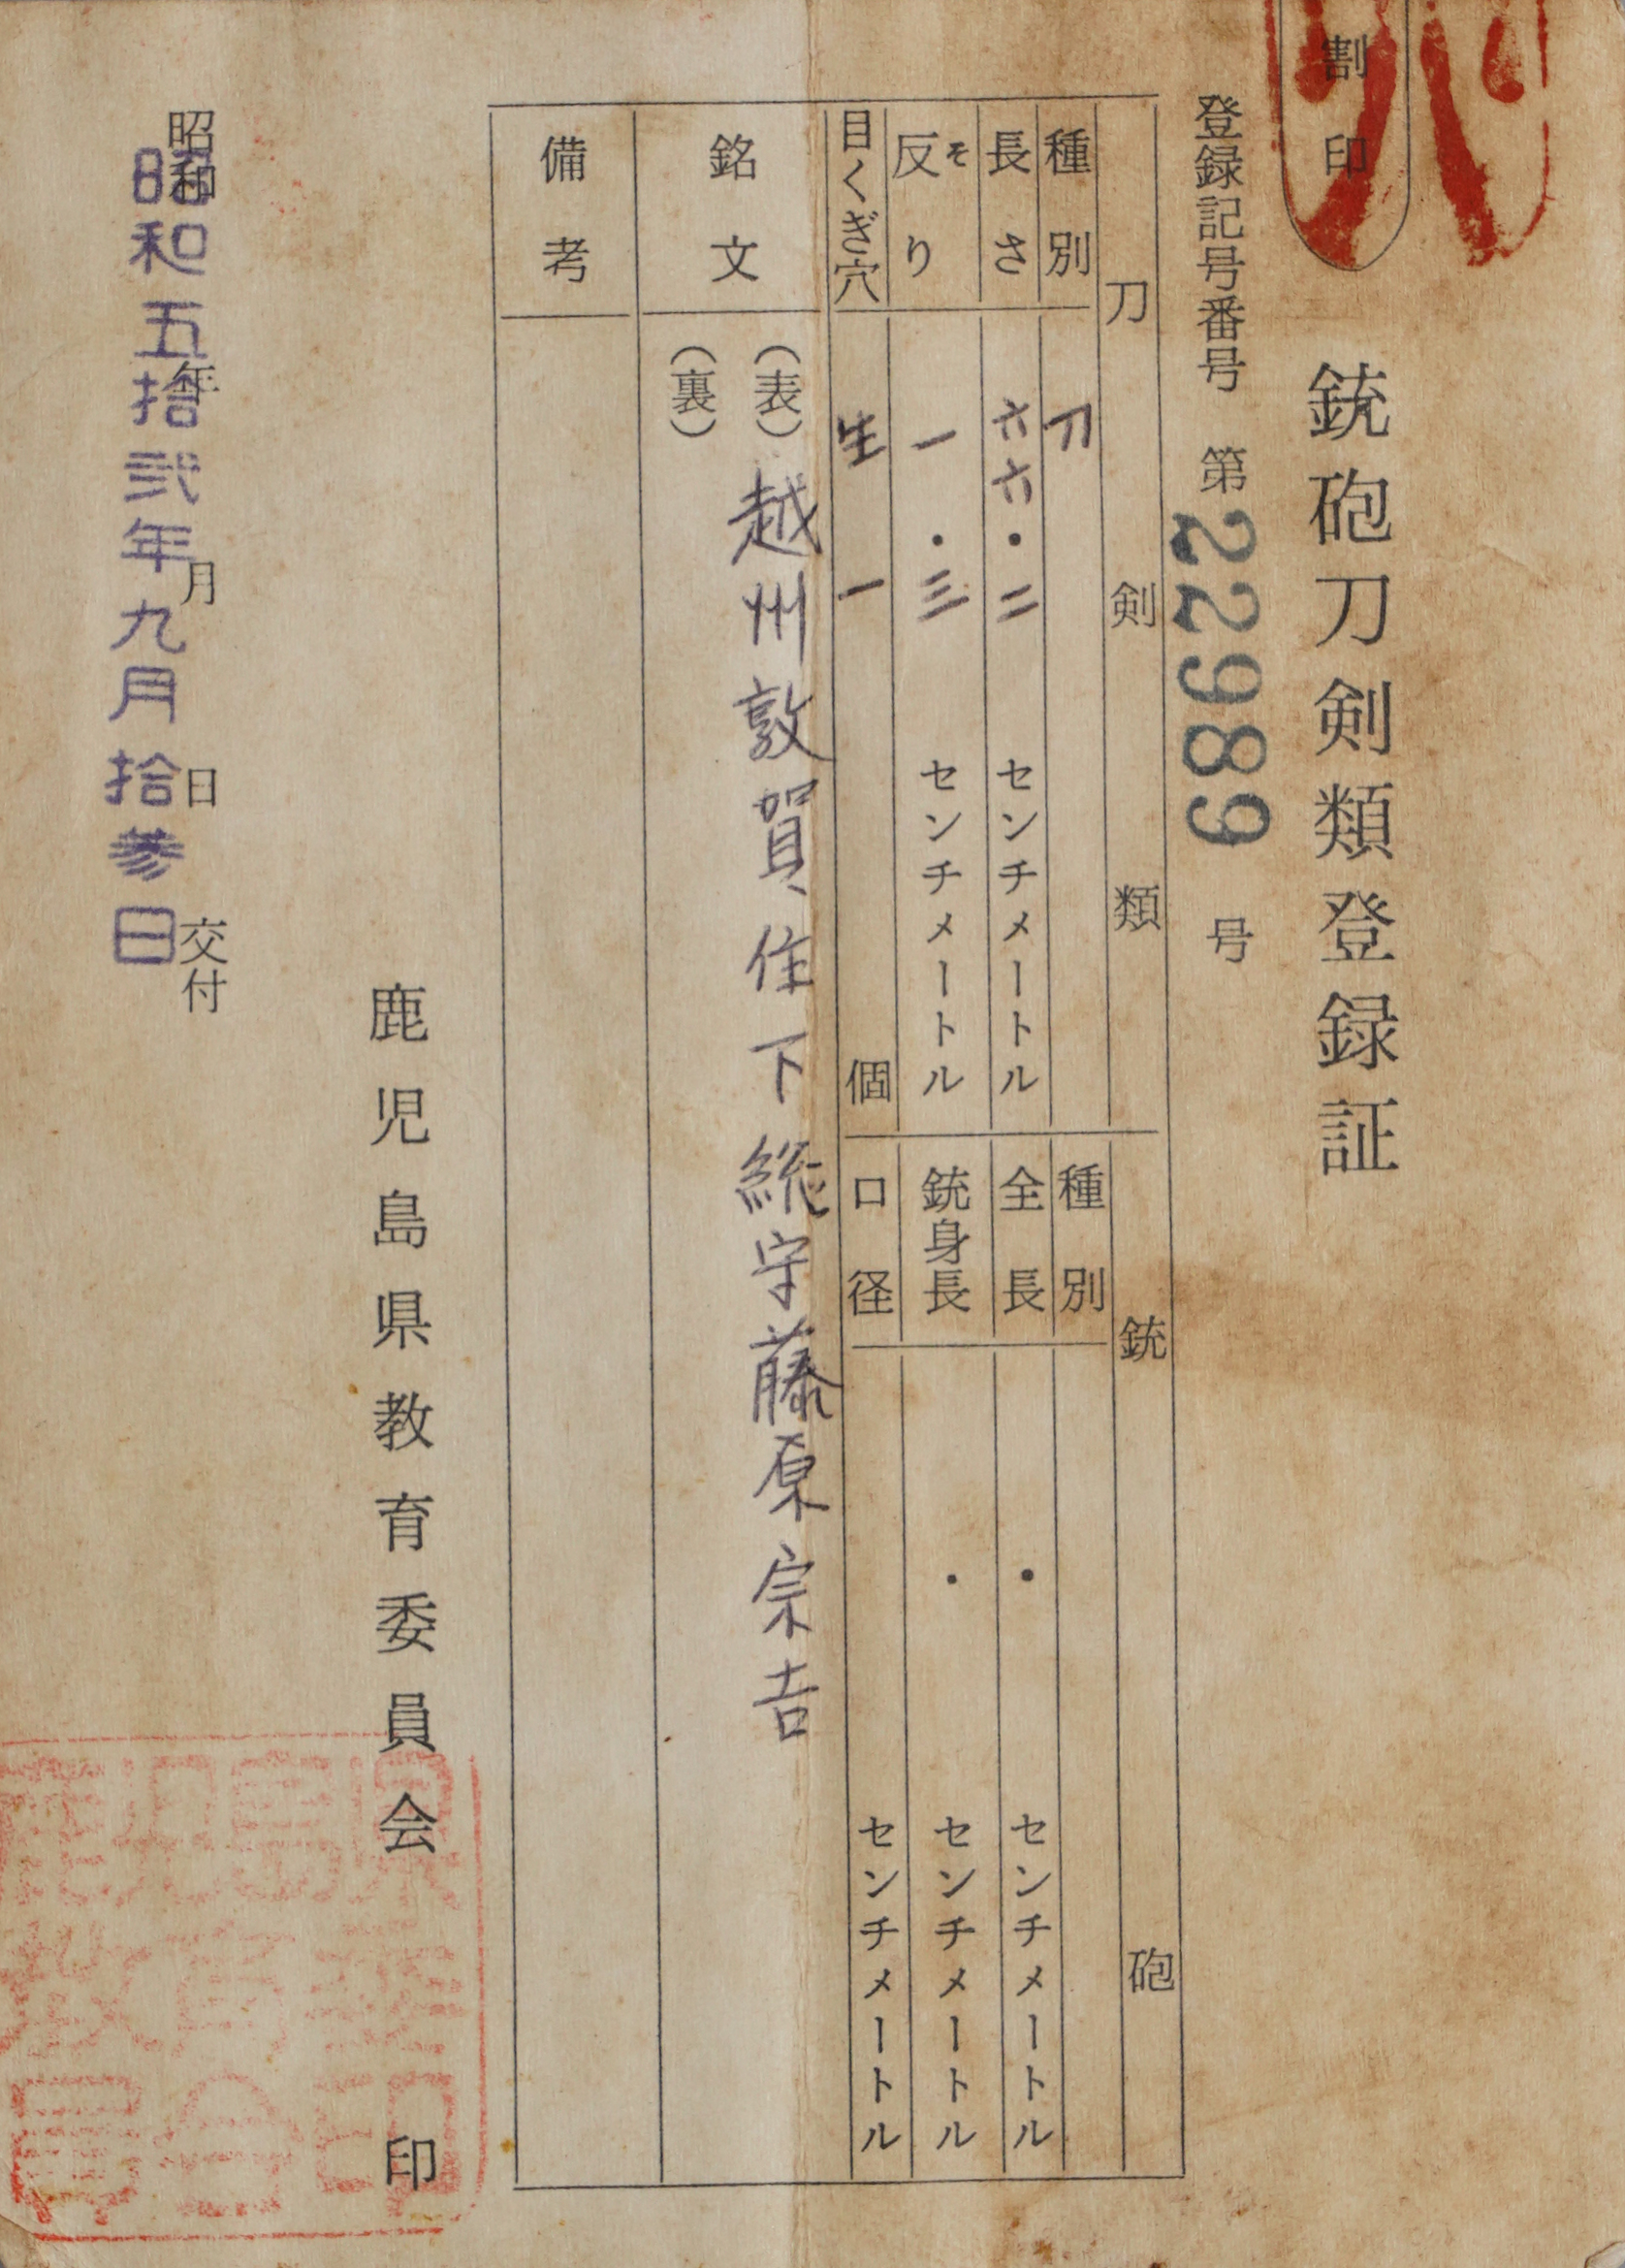 割印
銃砲刀剣類登録証
登録記号番号 第22989号
刀剣類
種別 刀
長さ 六六・二 センチメートル
反り そ 一・三 センチメートル
目くぎ穴 生 一 個
銃砲
種別
全長 ・ センチメートル
銃身長 ・ センチメートル
口径 センチメートル
銘文
(表)越州敦賀住下総守藤原宗吉
(裏)
備考
鹿児島県教育委員会 印
昭和 年 月 日 交付
昭和五拾弐年九月拾参日